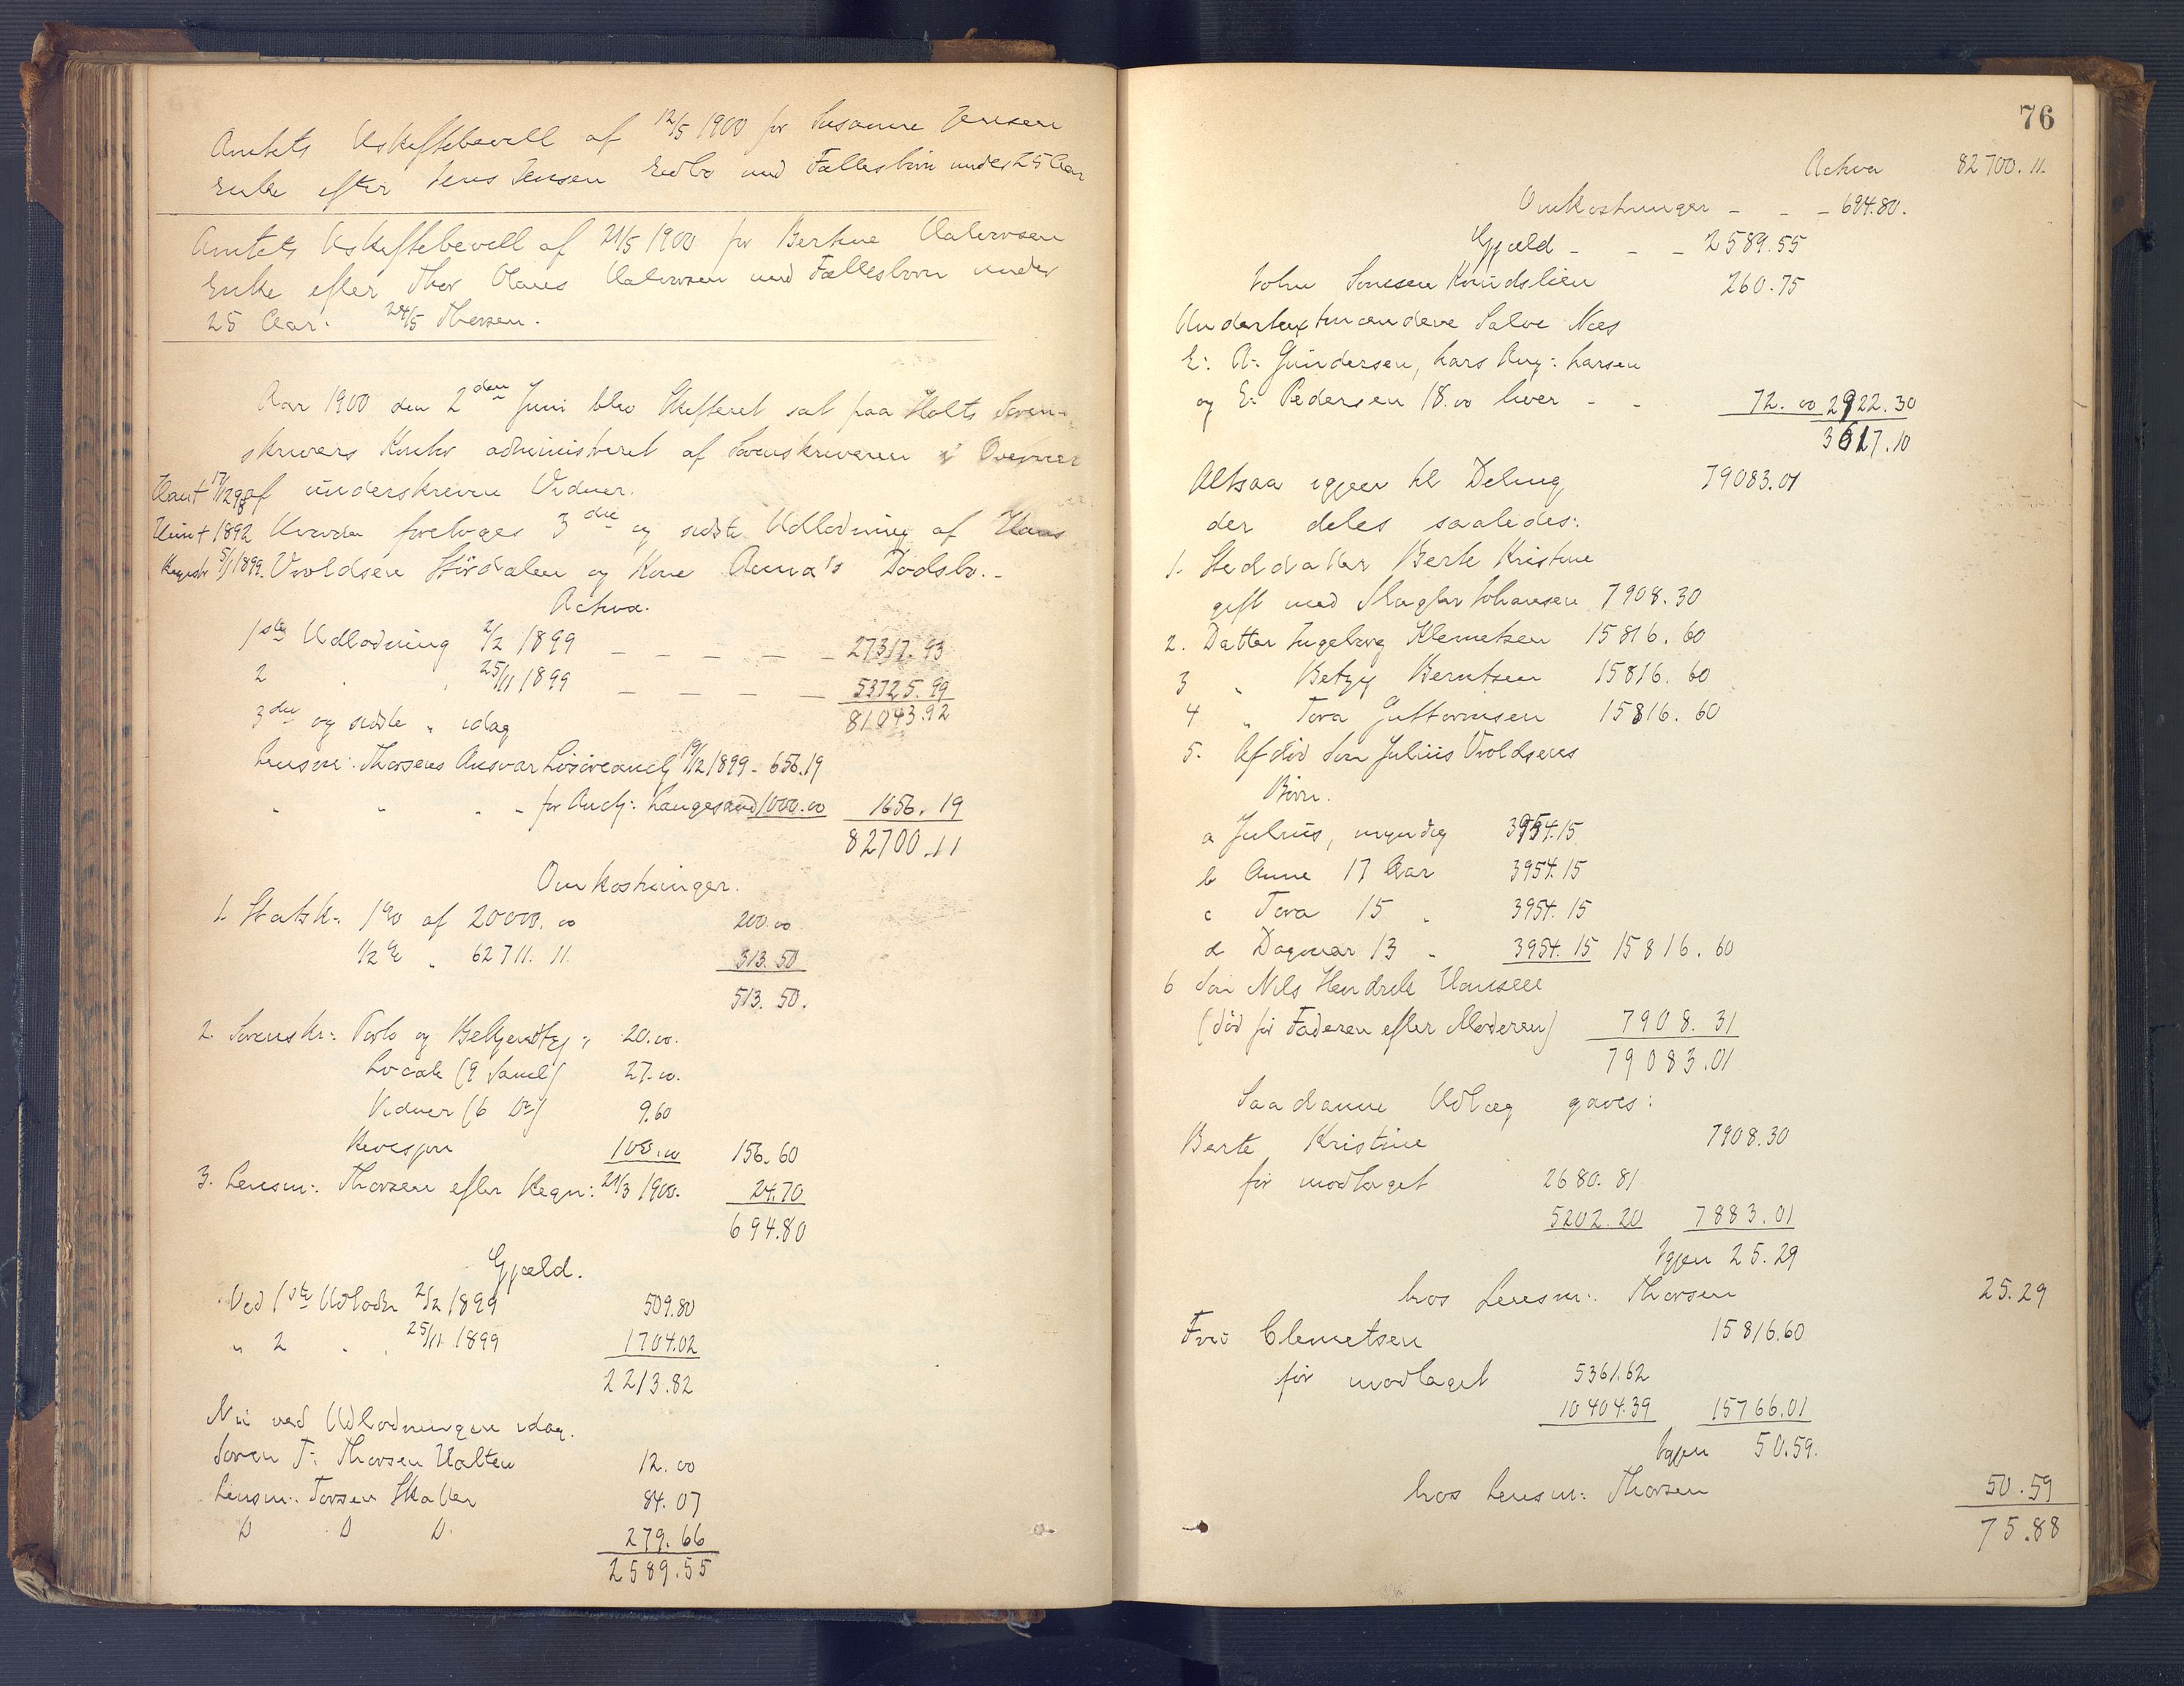 Amtets Uskiftebevill af 12/5 1900 for Susanne Jensen
Enke efter Jens Jensen Eidbo med Fællesbörn under 25 Aar
Amtets Uskiftebevill af 21/5 1900 for Bertine Halvorsen
Enke efter Thor Olaus Halvorsen med Fællesbörn under
25 Aar. 24/5 Thorsen.
Aar 1900 den 2den Juni blev Skifteret sat paa Holts Soren-
skrivers Kontor administreret af Sorenskriveren i Overvær
af underskrevne Vidner.
Hvorda foretoges 3die og sidste Udlodning af Hans
Vroldsen Stördalen og Kone Anna's Dödsbo.
Haut 17/12 98
Hun + 1892
Registr 5/1 1899.
Activa.
1ste Udlodning 2/2 1899 _ _ _ _ _ 27317.93
2 " 25/11 1899 _ _ _ _ 53725.99
3die og sidste " idag 81043.92
Lensm: Thorsens Ansvar Lösöreauct: 19/12 1899 - 656.19
" " " " for Auct: Langesand 1000.00 1656.19
82700.11
Omkostninger.
1. Statsk: 1% af 20000.00 200.00
1/2 % " 62711.11 313.50
513.50.
2. Sorenskr: Porto og Bekjendtgj: 20.00.
Locale (9 Saml) 27.00.
Vidner (6 Do) 9.60
Revision 100.00 156.60
3. Lensm: Thorsen efter Regn: 21/3 1900. 24.70
694.80
Gjæld.
Ved 1ste Udlodn 2/2 1899 509.80
" 2 " " 25/11 1899 1704.02
2213.82
Nu ved Udlodningen idag.
Soren T: Thorsen Halten 12.00
Lensm: Torsen Skatter 84.07
D D D. 279.66
2589.55
76
Activa 82700.11.
Omkostninger - - - 694.80.
Gjæld - - - 2589.55
John Sonesen Knudslien 260.75
Undertaxtmændene Salve Næs
E: A: Gundersen, Lars Aug: Larsen
og E: Pedersen 18.00 hver - - 72.00 2922.30
3617.10
Altsaa igjen til Deling, 79083.01
der deles saaledes:
1. Steddatter Berte Kristine
gift med Slagter Johansen 7908.30
2. Datter Ingeborg Klemetsen 15816.60
3 " Betzy Berntsen 15816.60
4 " Tora Guttormsen 15816.60
5. Afdöd Sön Julius Vroldsens
Börn.
a Julius, myndig 3954.15
b Anne 17 Aar 3954.15
c Tora 15 " 3954.15
d Dagmar 13 " 3954.15 15816.60
6 Sön Nils Hendrik Hansen
(död för Faderen efter Moderen) 7908.31
79083.01
Saadanne Udlæg gaves:
Berte Kristine 7908.30
för modtaget 2680.81
5202.20 7883.01
Igjen 25.29
hos Lensm: Thorsen 25.29
Fru Clemetsen 15816.60
för modtaget 5361.62
10404.39 15766.01
Igjen 50.59.
hos Lensm: Thorsen 50.59
75.88